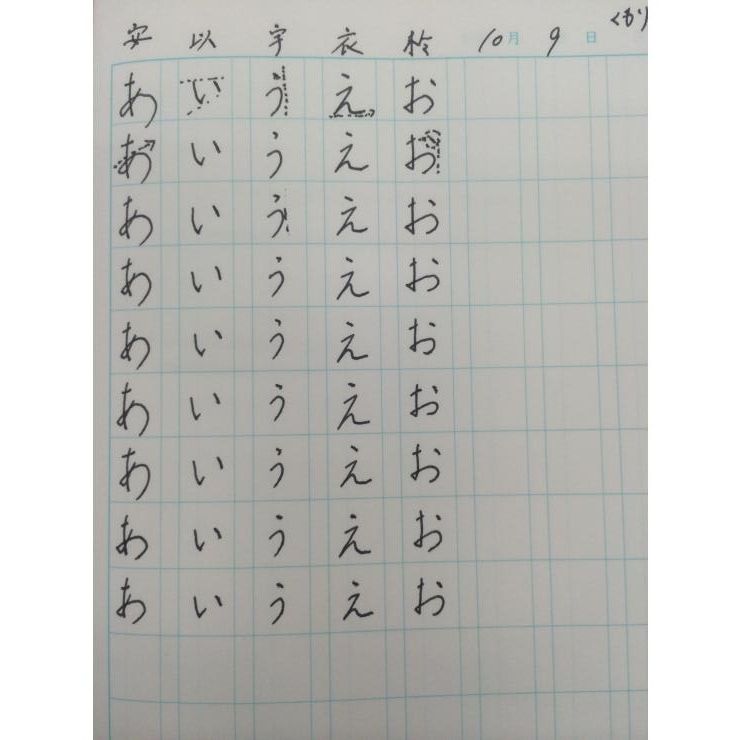 安 以 宇 衣 於 10月 9日 くもり
あ い う え お
あ い う え お
あ い う え お
あ い う え お
あ い う え お
あ い う え お
あ い う え お
あ い う え お
あ い う え お